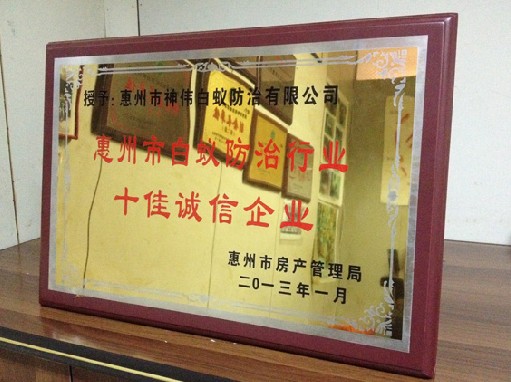 授予：惠州市神伟白蚁防治有限公司
惠州市白蚁防治行业
十佳诚信企业
惠州市房产管理局
二〇一三年一月